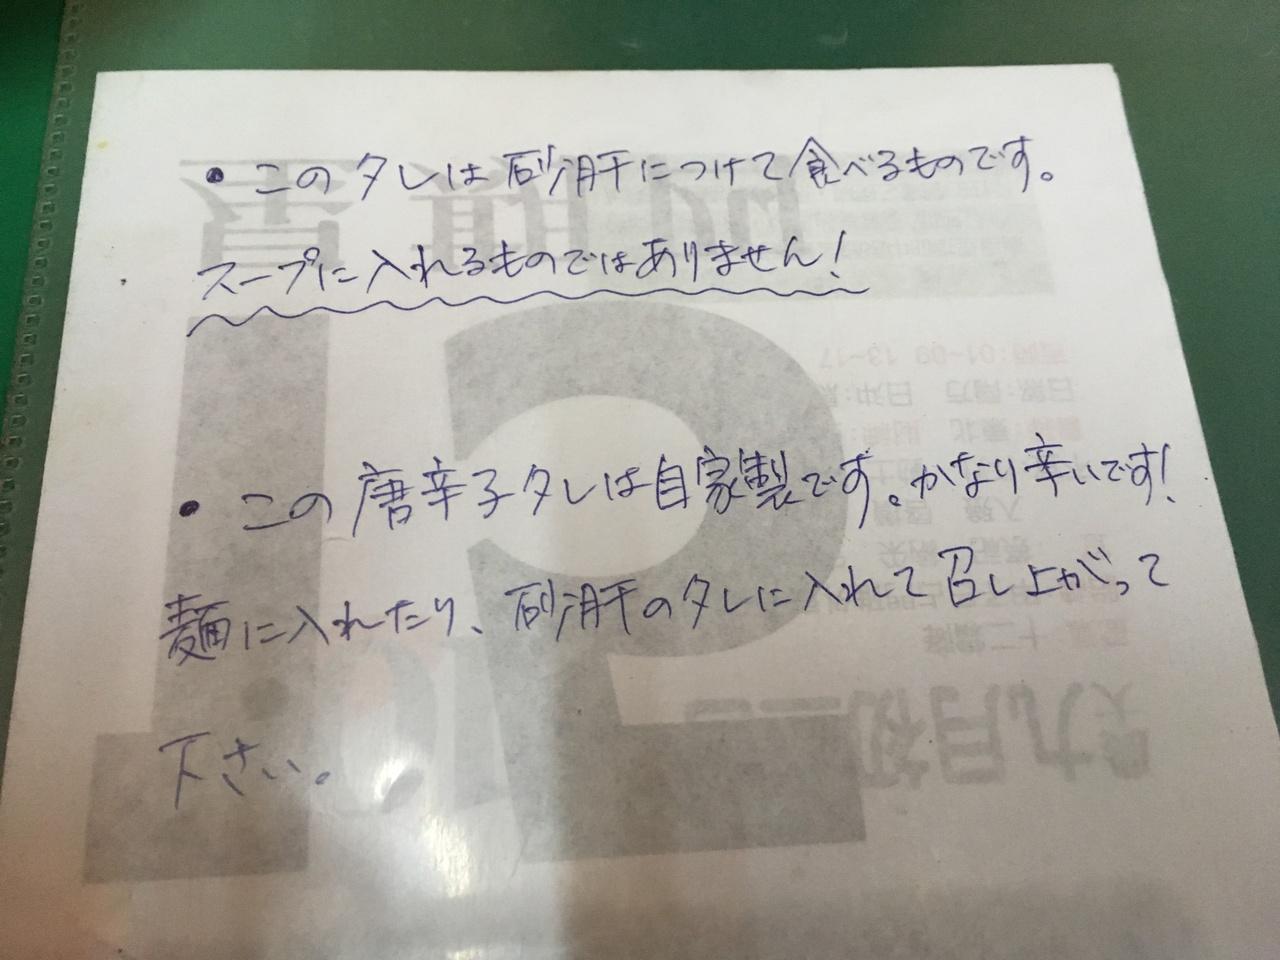 ・このタレは砂肝につけて食べるものです。
スープに入れるものではありません!
・この唐辛子タレは自家製です。かなり辛いです!
麺に入れたり、砂肝のタレに入れて召し上がって
下さい。